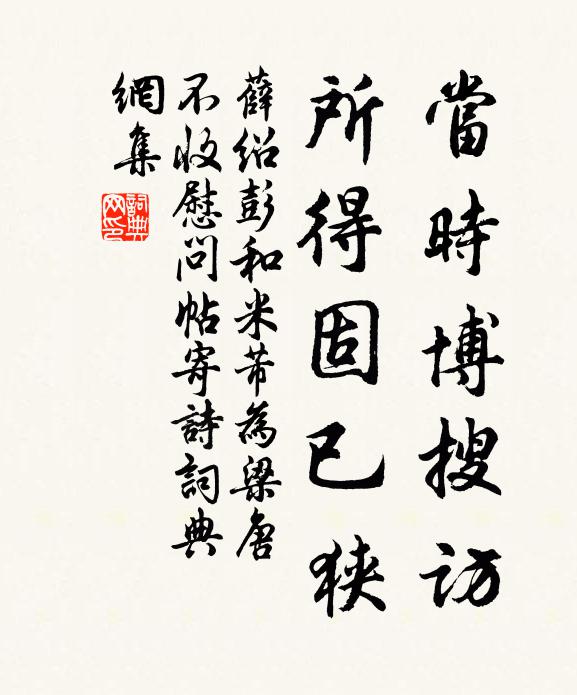 當時博搜訪
所得固已狹
薛紹彭和米芾為梁唐
不收慰問帖寄詩詞典
網集
詞典網印